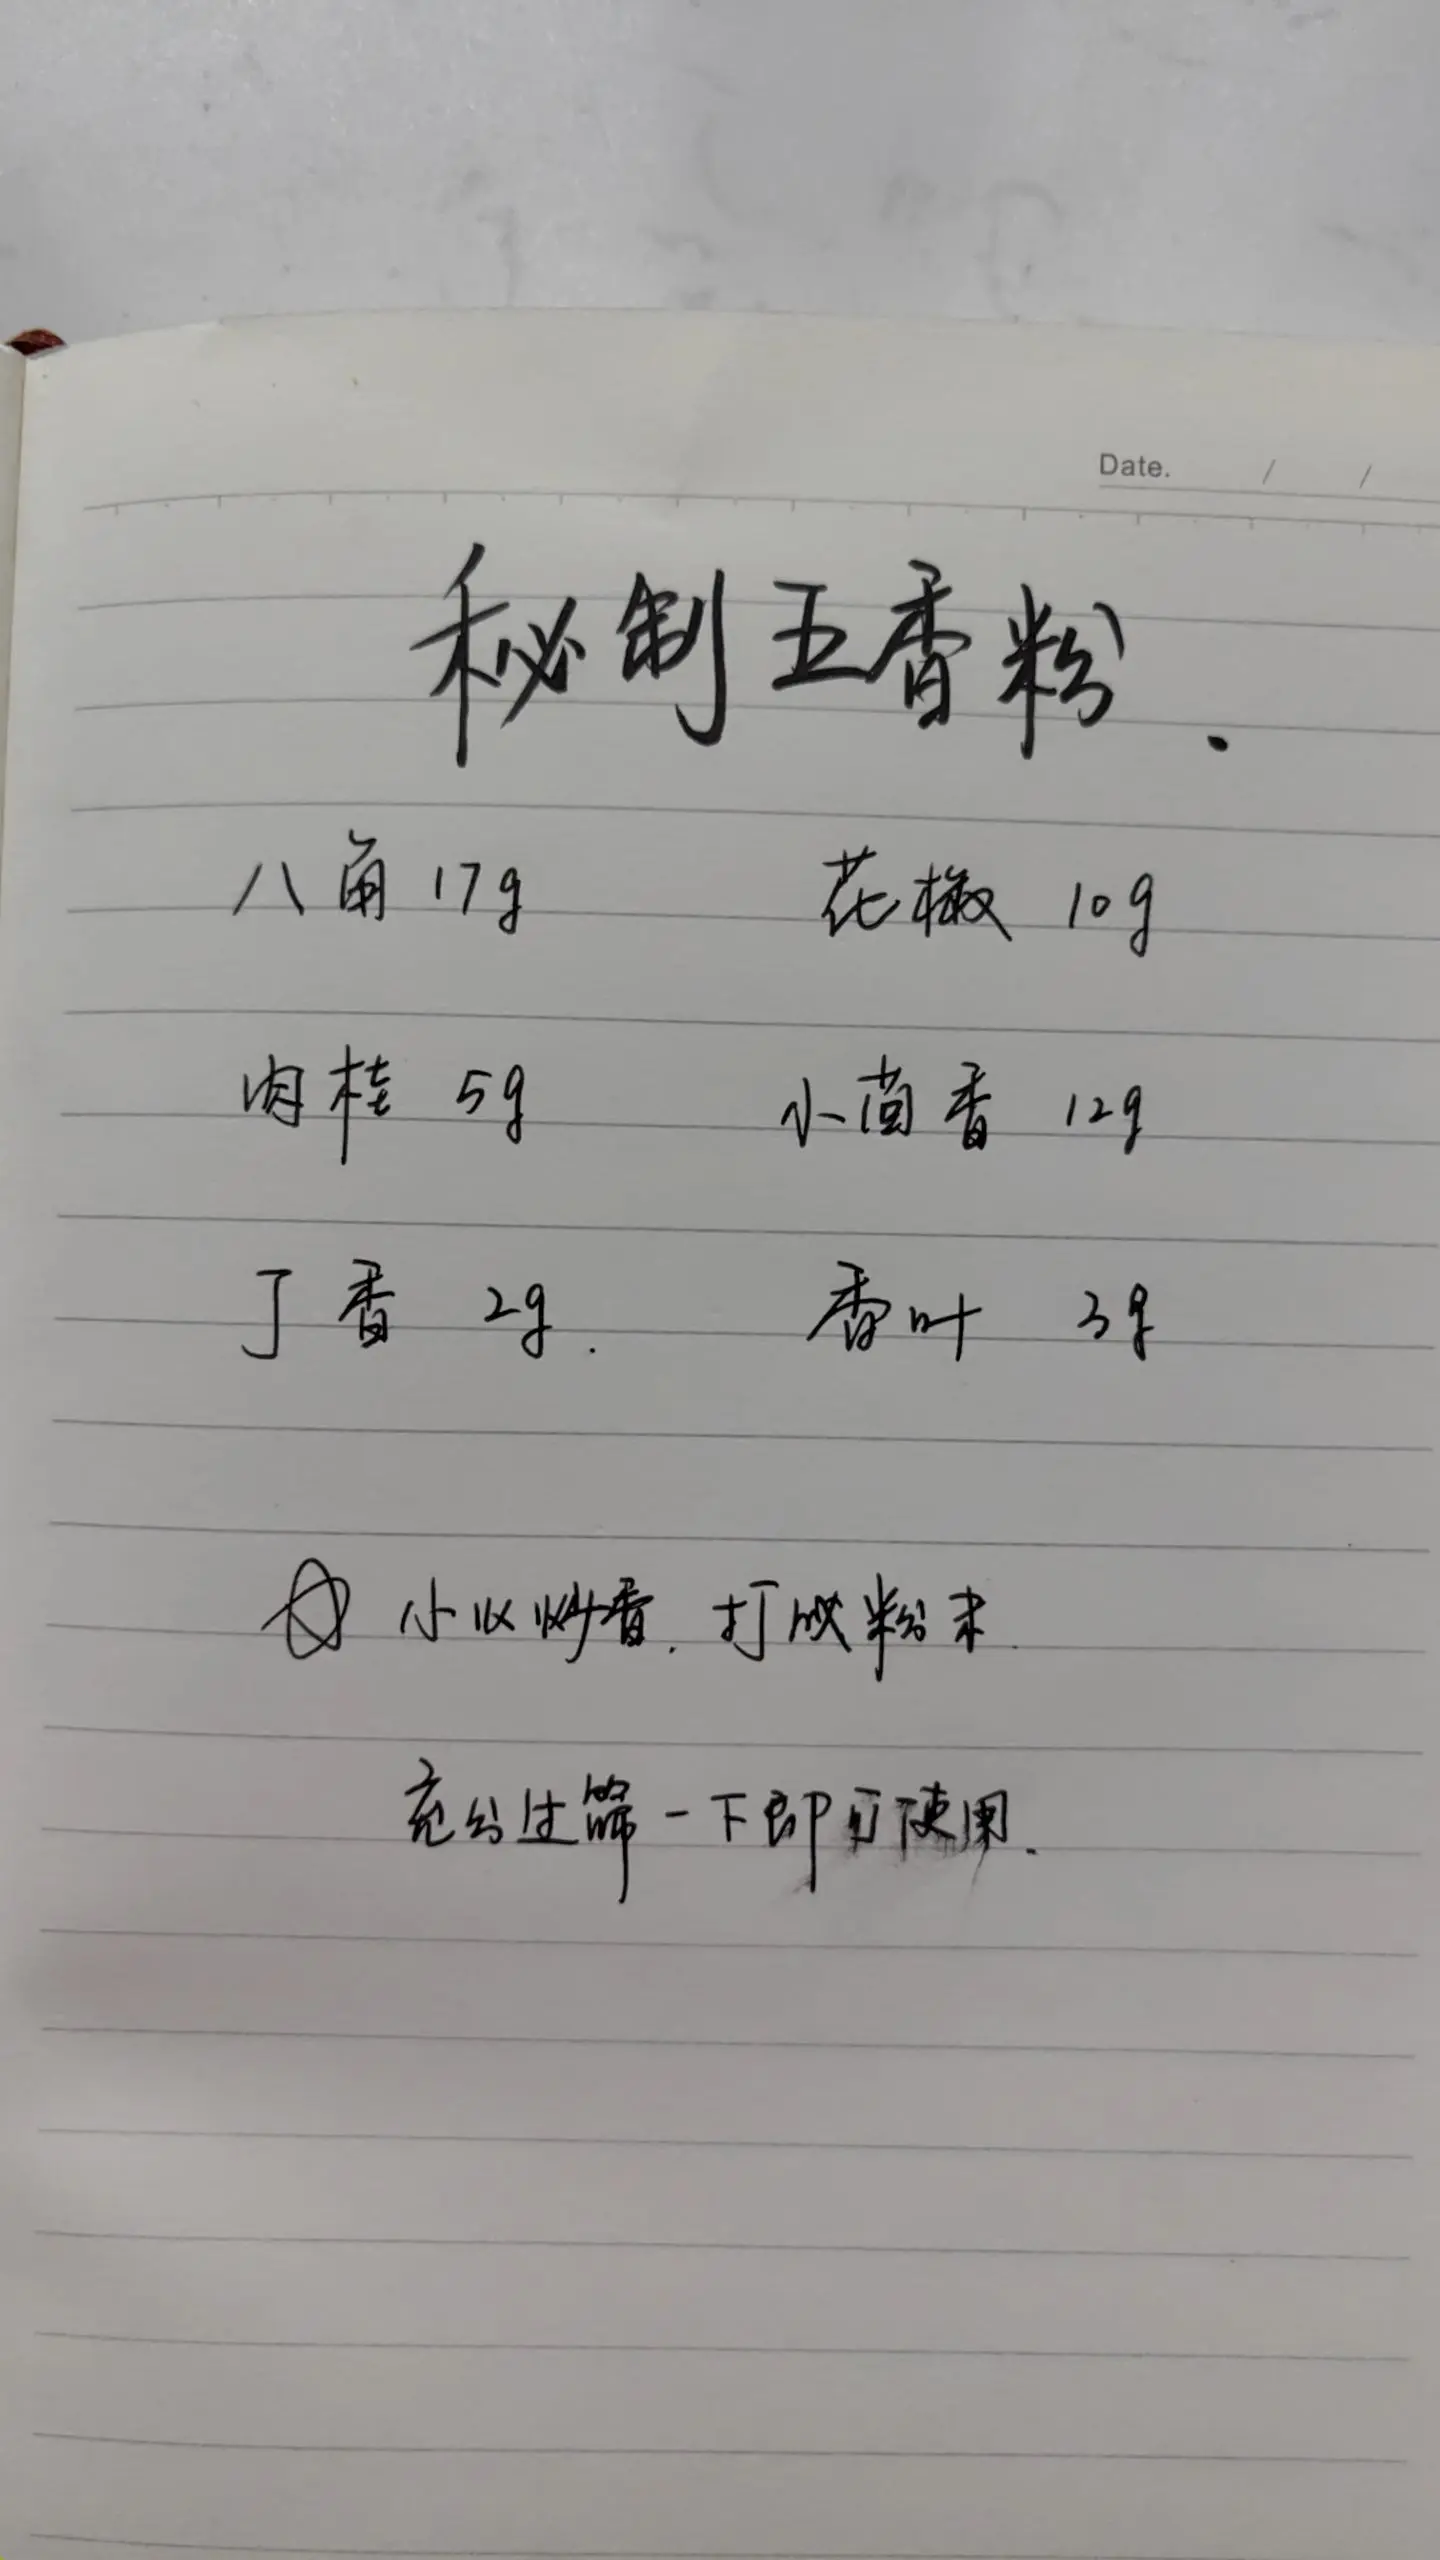 Date. / /
秘制五香粉.
八角 17g 花椒 10g
肉桂 5g 小茴香 12g
丁香 2g. 香叶 3g
☆ 小火炒香.打成粉末.
充分过筛一下即可使用.